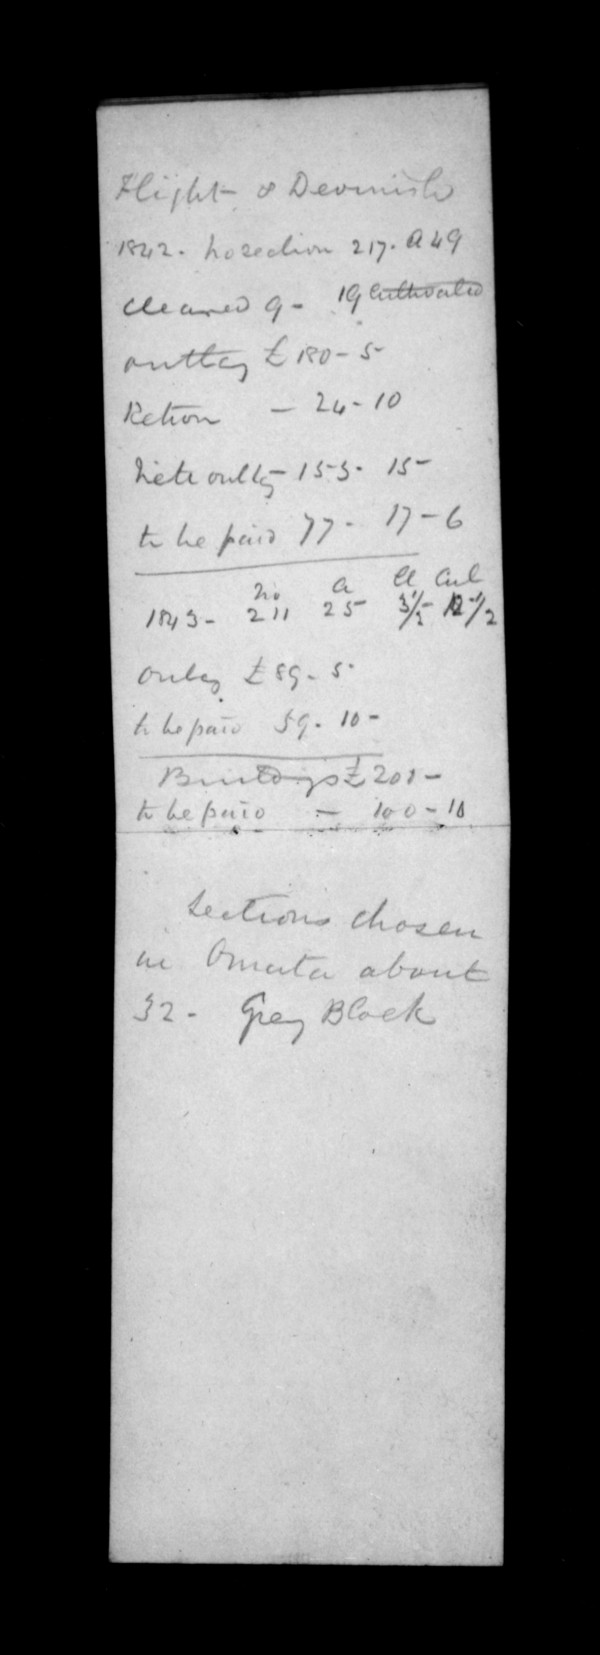 Flight & Devenish
1842. No section 217. A 49
Cleared 9 - 19 Cultivated
outlay £ 180 - 5
Return - 24 - 10
Nete outlay 155 - 15
to be paid 77 - 17 - 6
No a Cl Cul
1843 - 211 25 3 1/2 12 1/2
Outlay £ 89 - 5
to be paid 59 - 10 -
Buildings £ 201 -
to be paid - 100 - 10
Sections chosen
in Omata about
32 - Grey Block